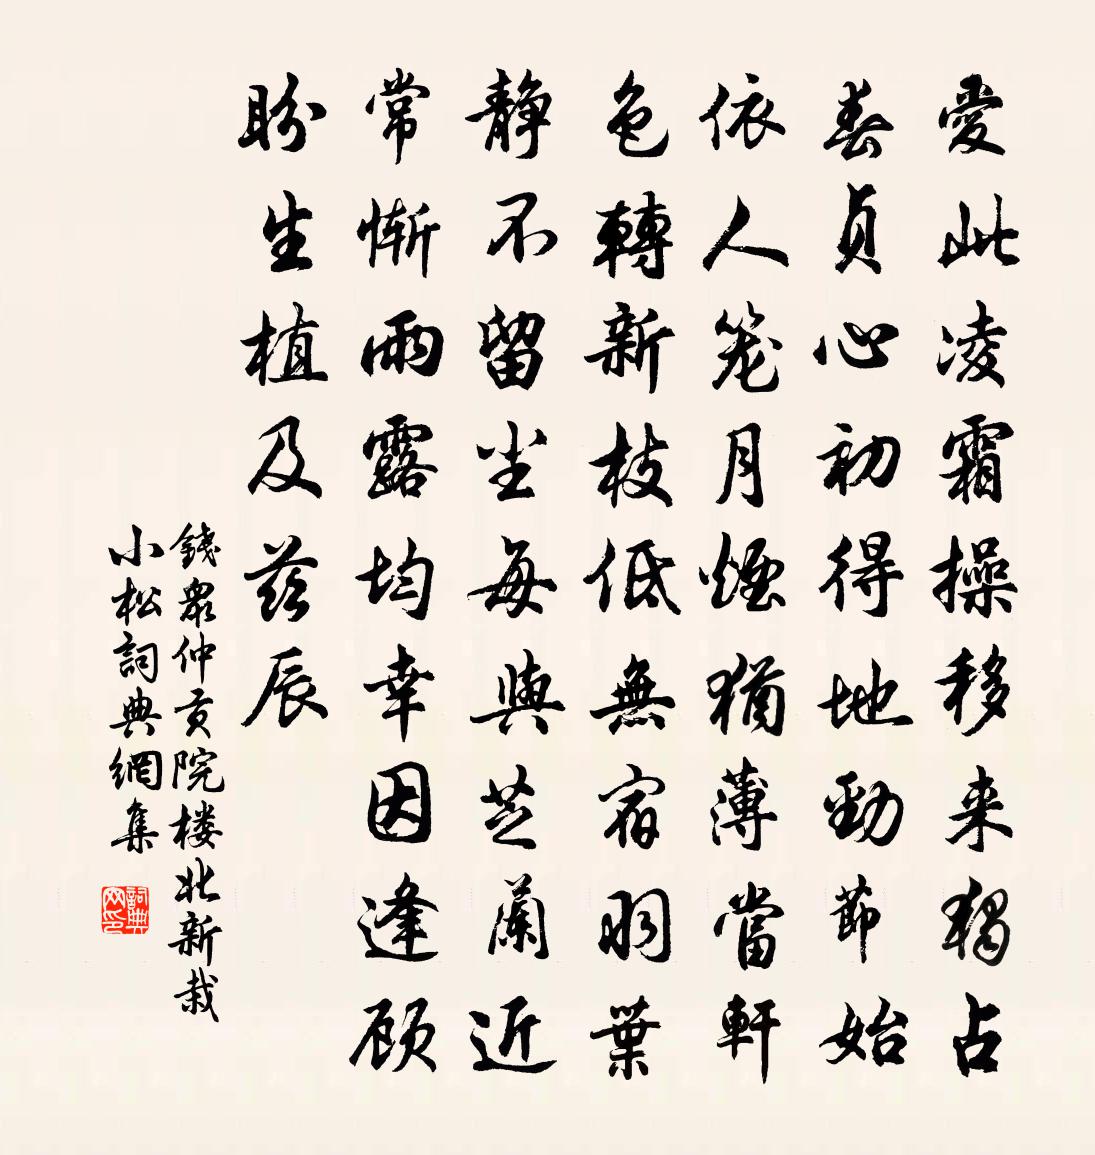 愛此凌霜操移来獨占
春貞心初得地勁節始
依人笼月煙猶薄當軒
色轉新枝低無宿羽葉
靜不留尘每與芝蘭近
常慚雨露均幸因逢顾
盼生植及茲辰
錢眾仲贡院楼北新栽
小松詞典網集
詞典网印